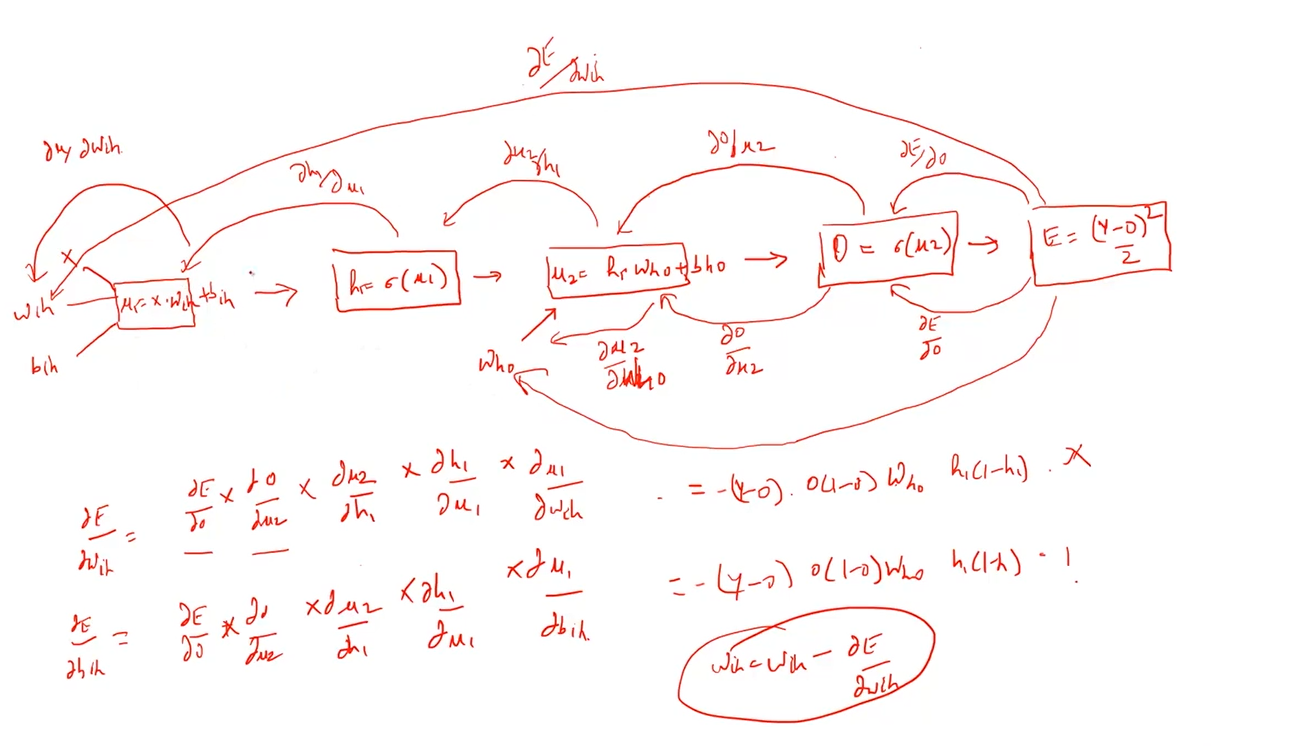 ∂E/∂wih
∂μ₁/∂wih
∂h₁/∂μ₁
∂μ2/h₁
∂O/μ2
∂E/∂O
x
wih
bih
μ₁=x·wih+bih
h₁=σ(μ1)
μ2= h₁·who+bho
O = σ(μ2)
E = (Y-O)²/2
who
∂μ2/∂who
∂O/∂μ2
∂E/∂O
∂E/∂wih = ∂E/∂O × ∂O/∂μ2 × ∂μ2/∂h₁ × ∂h₁/∂μ₁ × ∂μ1/∂wih . = -(Y-O). O(1-O) Who h₁(1-h₁) . X
∂E/∂bih = ∂E/∂O × ∂O/∂μ2 × ∂μ2/∂h₁ × ∂h₁/∂μ₁ × ∂μ₁/∂bih = -(Y-O) O(1-O) Who h₁(1-h) · 1
wih = wih - ∂E/∂wih